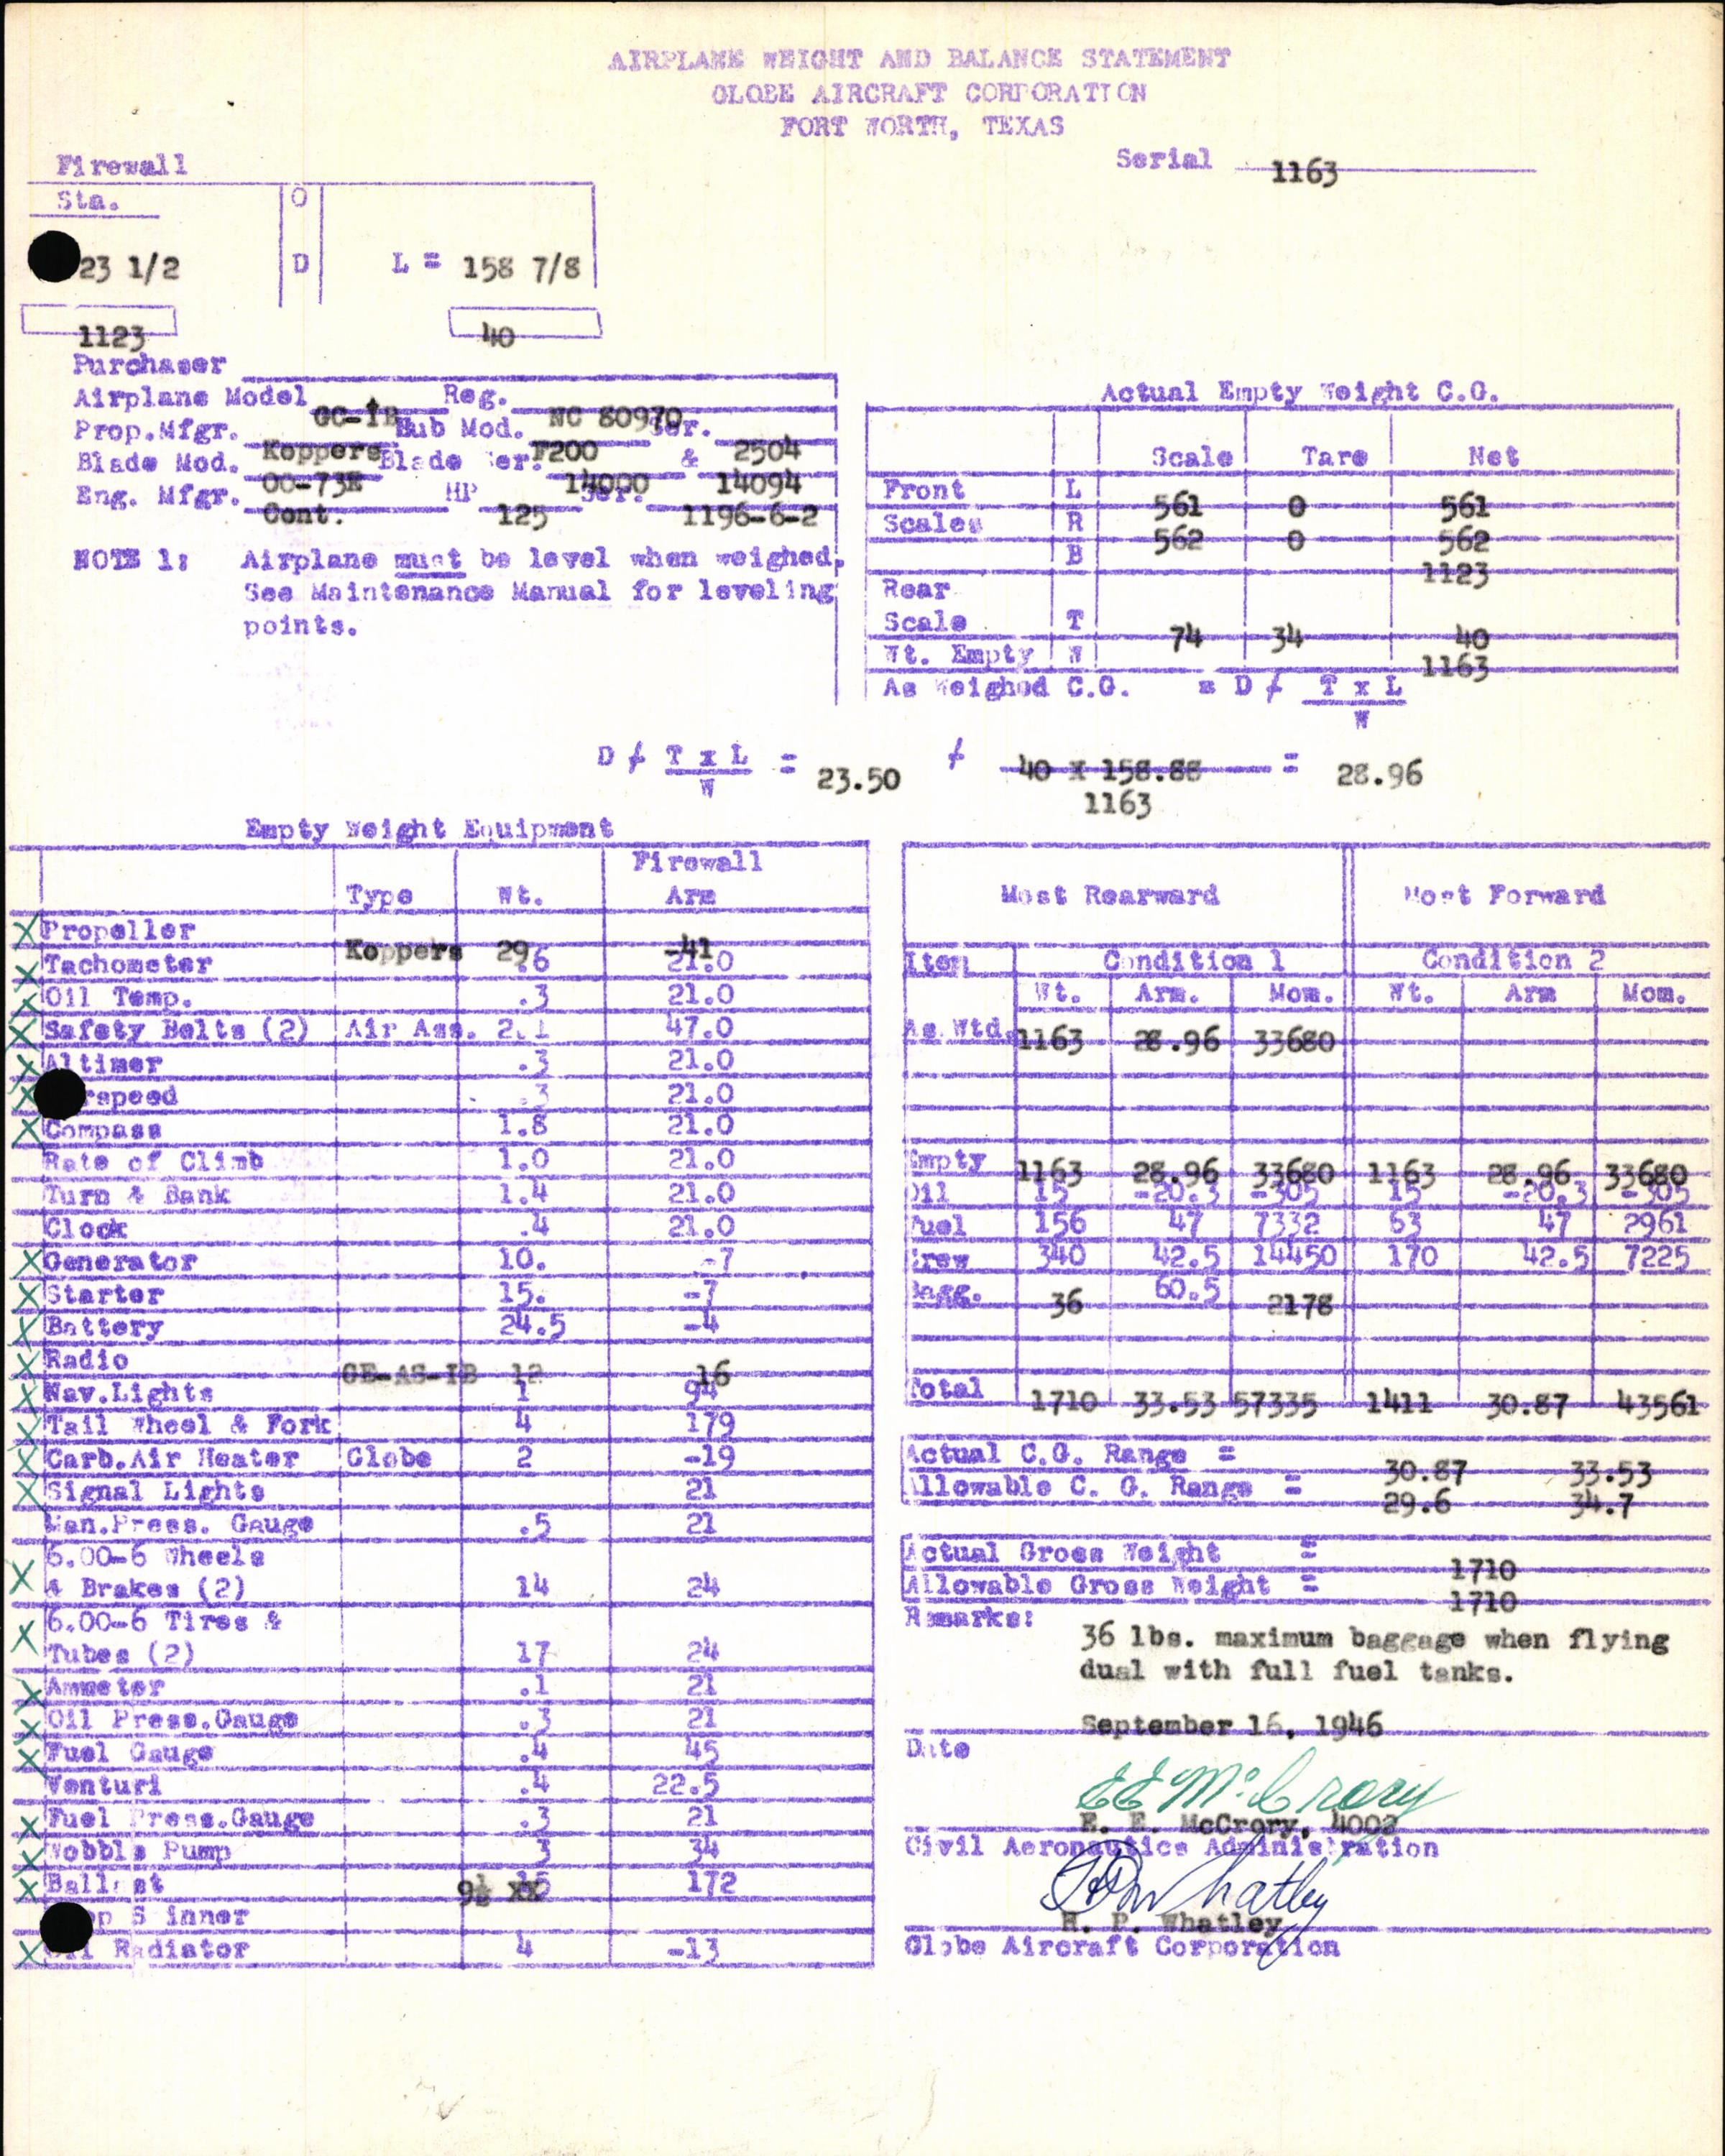 AIRPLANE WEIGHT AND BALANCE STATEMENT
GLOBE AIRCRAFT CORPORATION
FORT WORTH, TEXAS
Serial 1163
Firewall
Sta. O
23 1/2 D L = 158 7/8
1123 40
Purchaser
Airplane Model GC-1B Reg. NC 80970
Prop.Mfgr. Koppers Hub Mod. F200 Ser. 2504
Blade Mod. 00-73E Blade Ser. 14000 & 14094
Eng. Mfgr. Cont. HP 125 Ser. 1196-6-2
NOTE 1: Airplane must be level when weighed.
See Maintenance Manual for leveling
points.
Actual Empty Weight C.G.
Scale Tare Net
Front L 561 0 561
Scales R 562 0 562
B 1123
Rear
Scale T 74 34 40
Wt. Empty W 1163
As Weighed C.G. = D / T x L
W
D / T x L = 23.50 / 40 X 158.88 = 28.96
W 1163
Empty Weight Equipment
Firewall
Type Wt. Arm
X Propeller Koppers 29 -41
X Tachometer .6 21.0
X Oil Temp. .3 21.0
X Safety Belts (2) Air Ass. 2.1 47.0
X Altimer .3 21.0
X rspeed .3 21.0
X Compass 1.8 21.0
Rate of Climb 1.0 21.0
Turn & Bank 1.4 21.0
Clock .4 21.0
X Generator 10. -7
X Starter 15. -7
X Battery 24.5 -4
X Radio GE-AS-1B 12 16
X Nav.Lights 1 94
X Tail Wheel & Fork 4 179
X Carb.Air Heater Globe 2 -19
X Signal Lights 21
Man.Press. Gauge .5 21
6.00-6 Wheels
X & Brakes (2) 14 24
6.00-6 Tires &
X Tubes (2) 17 24
X Ammeter .1 21
X Oil Press.Gauge .3 21
X Fuel Gauge .4 45
Venturi .4 22.5
X Fuel Press.Gauge .3 21
X Wobble Pump 3 34
X Ballast 9½ XX 172
op S inner
X Oil Radiator 4 -13
Most Rearward Most Forward
Item Condition 1 Condition 2
Wt. Arm. Mom. Wt. Arm Mom.
As Wtd. 1163 28.96 33680
Empty 1163 28.96 33680 1163 28.96 33680
Oil 15 -20.3 -305 15 -20.3 -305
Fuel 156 47 7332 63 47 2961
Crew 340 42.5 14450 170 42.5 7225
Bagg. 36 60.5 2178
Total 1710 33.53 57335 1411 30.87 43561
Actual C.G. Range = 30.87 33.53
Allowable C. G. Range = 29.6 34.7
Actual Gross Weight = 1710
Allowable Gross Weight = 1710
Remarks:
36 lbs. maximum baggage when flying
dual with full fuel tanks.
September 16, 1946
Date
EE McCrory
E. E. McCrory, 4002
Civil Aeronautics Administration
H P Whatley
H. P. Whatley
Globe Aircraft Corporation